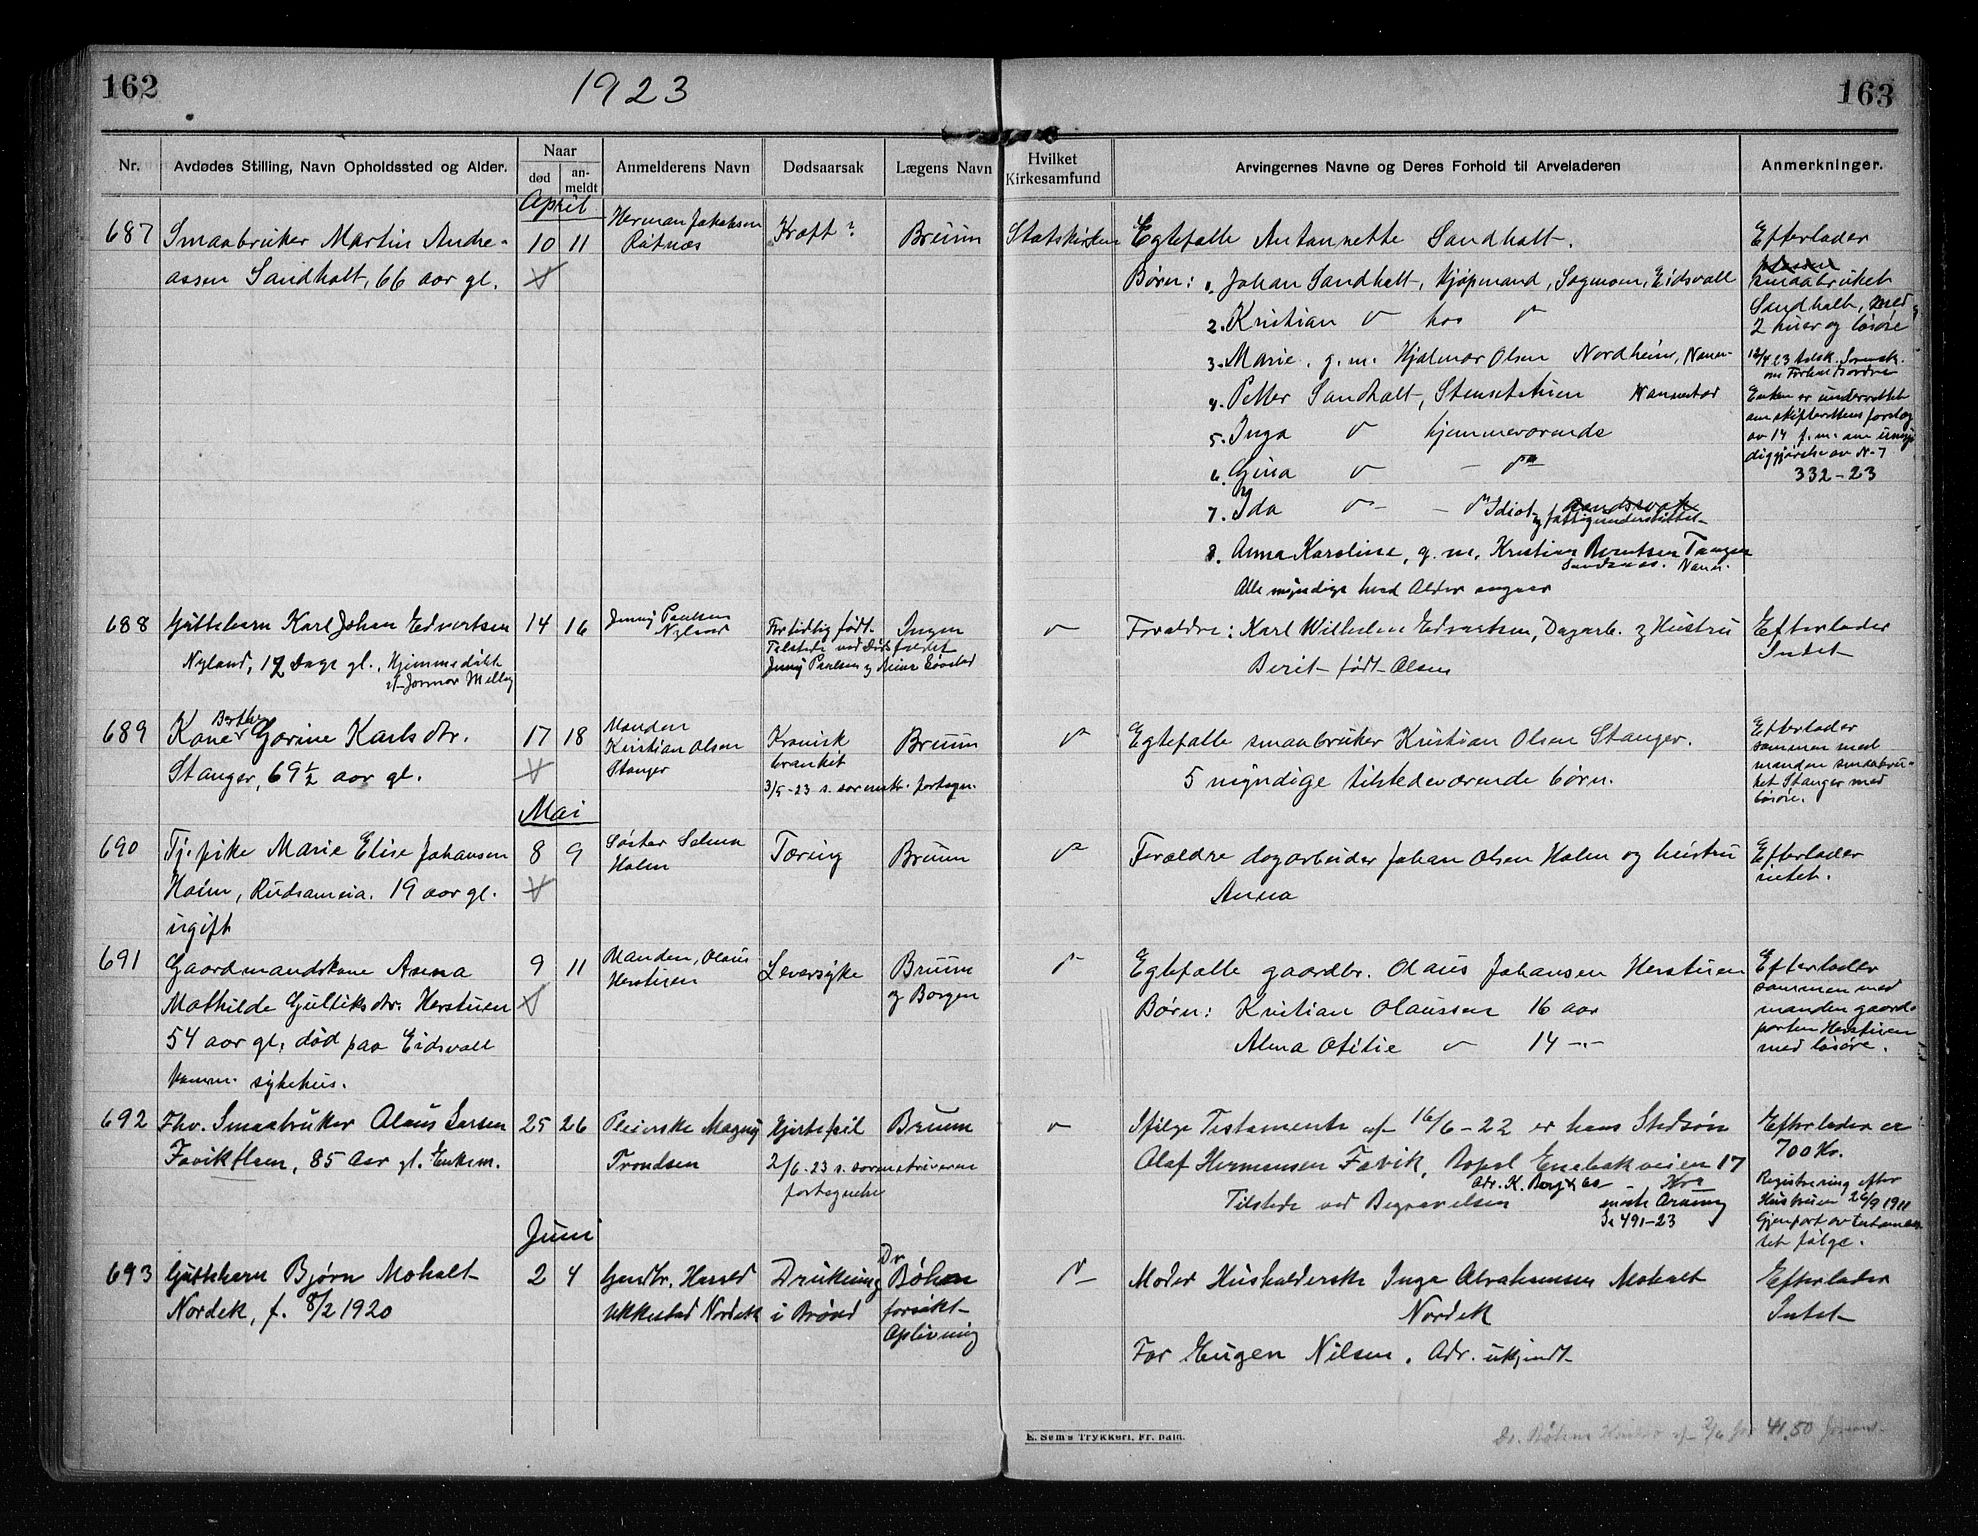 162
1923
163
Nr.
Avdødes Stilling, Navn Opholdssted og Alder.
Naar
død
an-
meldt
Anmelderens Navn
Dødsaarsak
Lægens Navn
Hvilket
Kirkesamfund
Arvingernes Navne og Deres Forhold til Arveladeren
Anmerkninger.
April
687
Smaabruker Martin Andre-
assen Sandholt, 66 aar gl.
10
11
Herman Jakobsen
Røtnæs
Kræft?
Bruun
Statskirken
Egtefælle Antonette Sandholt.
Børn: 1. Johan Sandholt, Kjøpmand, Sagmoen, Eidsvoll
2. Kristian " hos "
3. Marie, g.m. Hjalmar Olsen Nordheim, Nanne-
4. Petter Sandholt, Stensetstuen Nannestad
5. Inga " hjemmeværende
6. Gina " - " -
7. Ida " - - " Idiot
og fattigunderstøttet
8. Anna Karoline, g.m. Kristian Berntsen Tangen
Nann.
Alle myndige hvad Alder angaar
Efterlader
smaabruket
Sandholt, med
2 kuer og løsøre
Enken er underrettet
om skifterettens forslag
av 14 f.m. om umyn
diggjørelse av N-7
332-23
688
Guttebarn Karl Johan Edvartsen
Nyland, 12 Dage gl., Hjemmedøbt
af Jormor Melby
14
16
Jenny Paulsen
Nyland
For tidlig født.
Tilstede ved Dødsfaldet
Jenny Paulsen og
Ingen
Forældre: Karl Wilhelm Edvartsen, Dagarb. og Hustru
Berit født Olsen
Efterlader
Intet
689
Kone Berthe Gorine Karlsdtr.
Stanger, 69½ aar gl.
17
18
Manden
Kristian Olsen
Stanger
Kronisk
3/5-23 s. sorenskr. fortegn.
Bruun
Egtefælle smaabruker Kristian Olsen Stanger.
5 myndige tilstedeværende børn.
Efterlader
sammen med
manden smaabru-
ket Stanger med
løsøre.
Mai
690
Tj. pike Marie Elise Johansen
Holm, Rudsameia. 19 aar gl.
ugift
8
9
Søster Selma
Holm
Tæring
Bruun
Forældre dagarbeider Johan Olsen Holm og hustru
Anna
Efterlader
intet.
691
Gaardmandskone Anna
Mathilde Gulliksdtr. Herstuen
54 aar gl, død paa Eidsvoll
komm. sykehus.
9
11
Manden, Olaus
Herstuen
Leversyke
Bruun
og Borgen
Egtefælle gaardbr. Olaus Johansen Herstuen
Børn: Kristian Olaussen 16 aar
Alma Otilie " 14 -.-
Efterlader
sammen med
manden gaard-
parten Herstuen
med løsøre.
692
Fhv. Smaabruker Olaus Larsen
Favikflaen, 85 Aar gl. Enkem.
25
26
Pleierske Magny
Trondsen
Hjertefeil
2/6-23 s. sorenskriveren
fortegnelse
Bruun
Ifølge Testamente af 16/6-22 er hans Stedsøn
Olaf Hermansen Favik, Enebakveien 17
Tilstede ved Begravelsen
Se 491-23
Efterlader ca
700 Kr.
Registrering efter
Hustruen 26/9 1911
Gjenpart av testamen
tet følge.
Juni
693
Guttebarn Bjørn Moholt
Nordek, f. 8/2 1920
2
4
Gaardbr. Harald
Ukkestad Nordek
Drukning
i Brønd
Dr.
Bøhm
forsøkt
Oplivning
Moder Husholderske Inga Abrahamsen Moholt
Nordek
Far Eugen Nilsen. Adr. ukjendt
Efterlader
Intet
E. Sem's Trykkeri, Fr. hald.